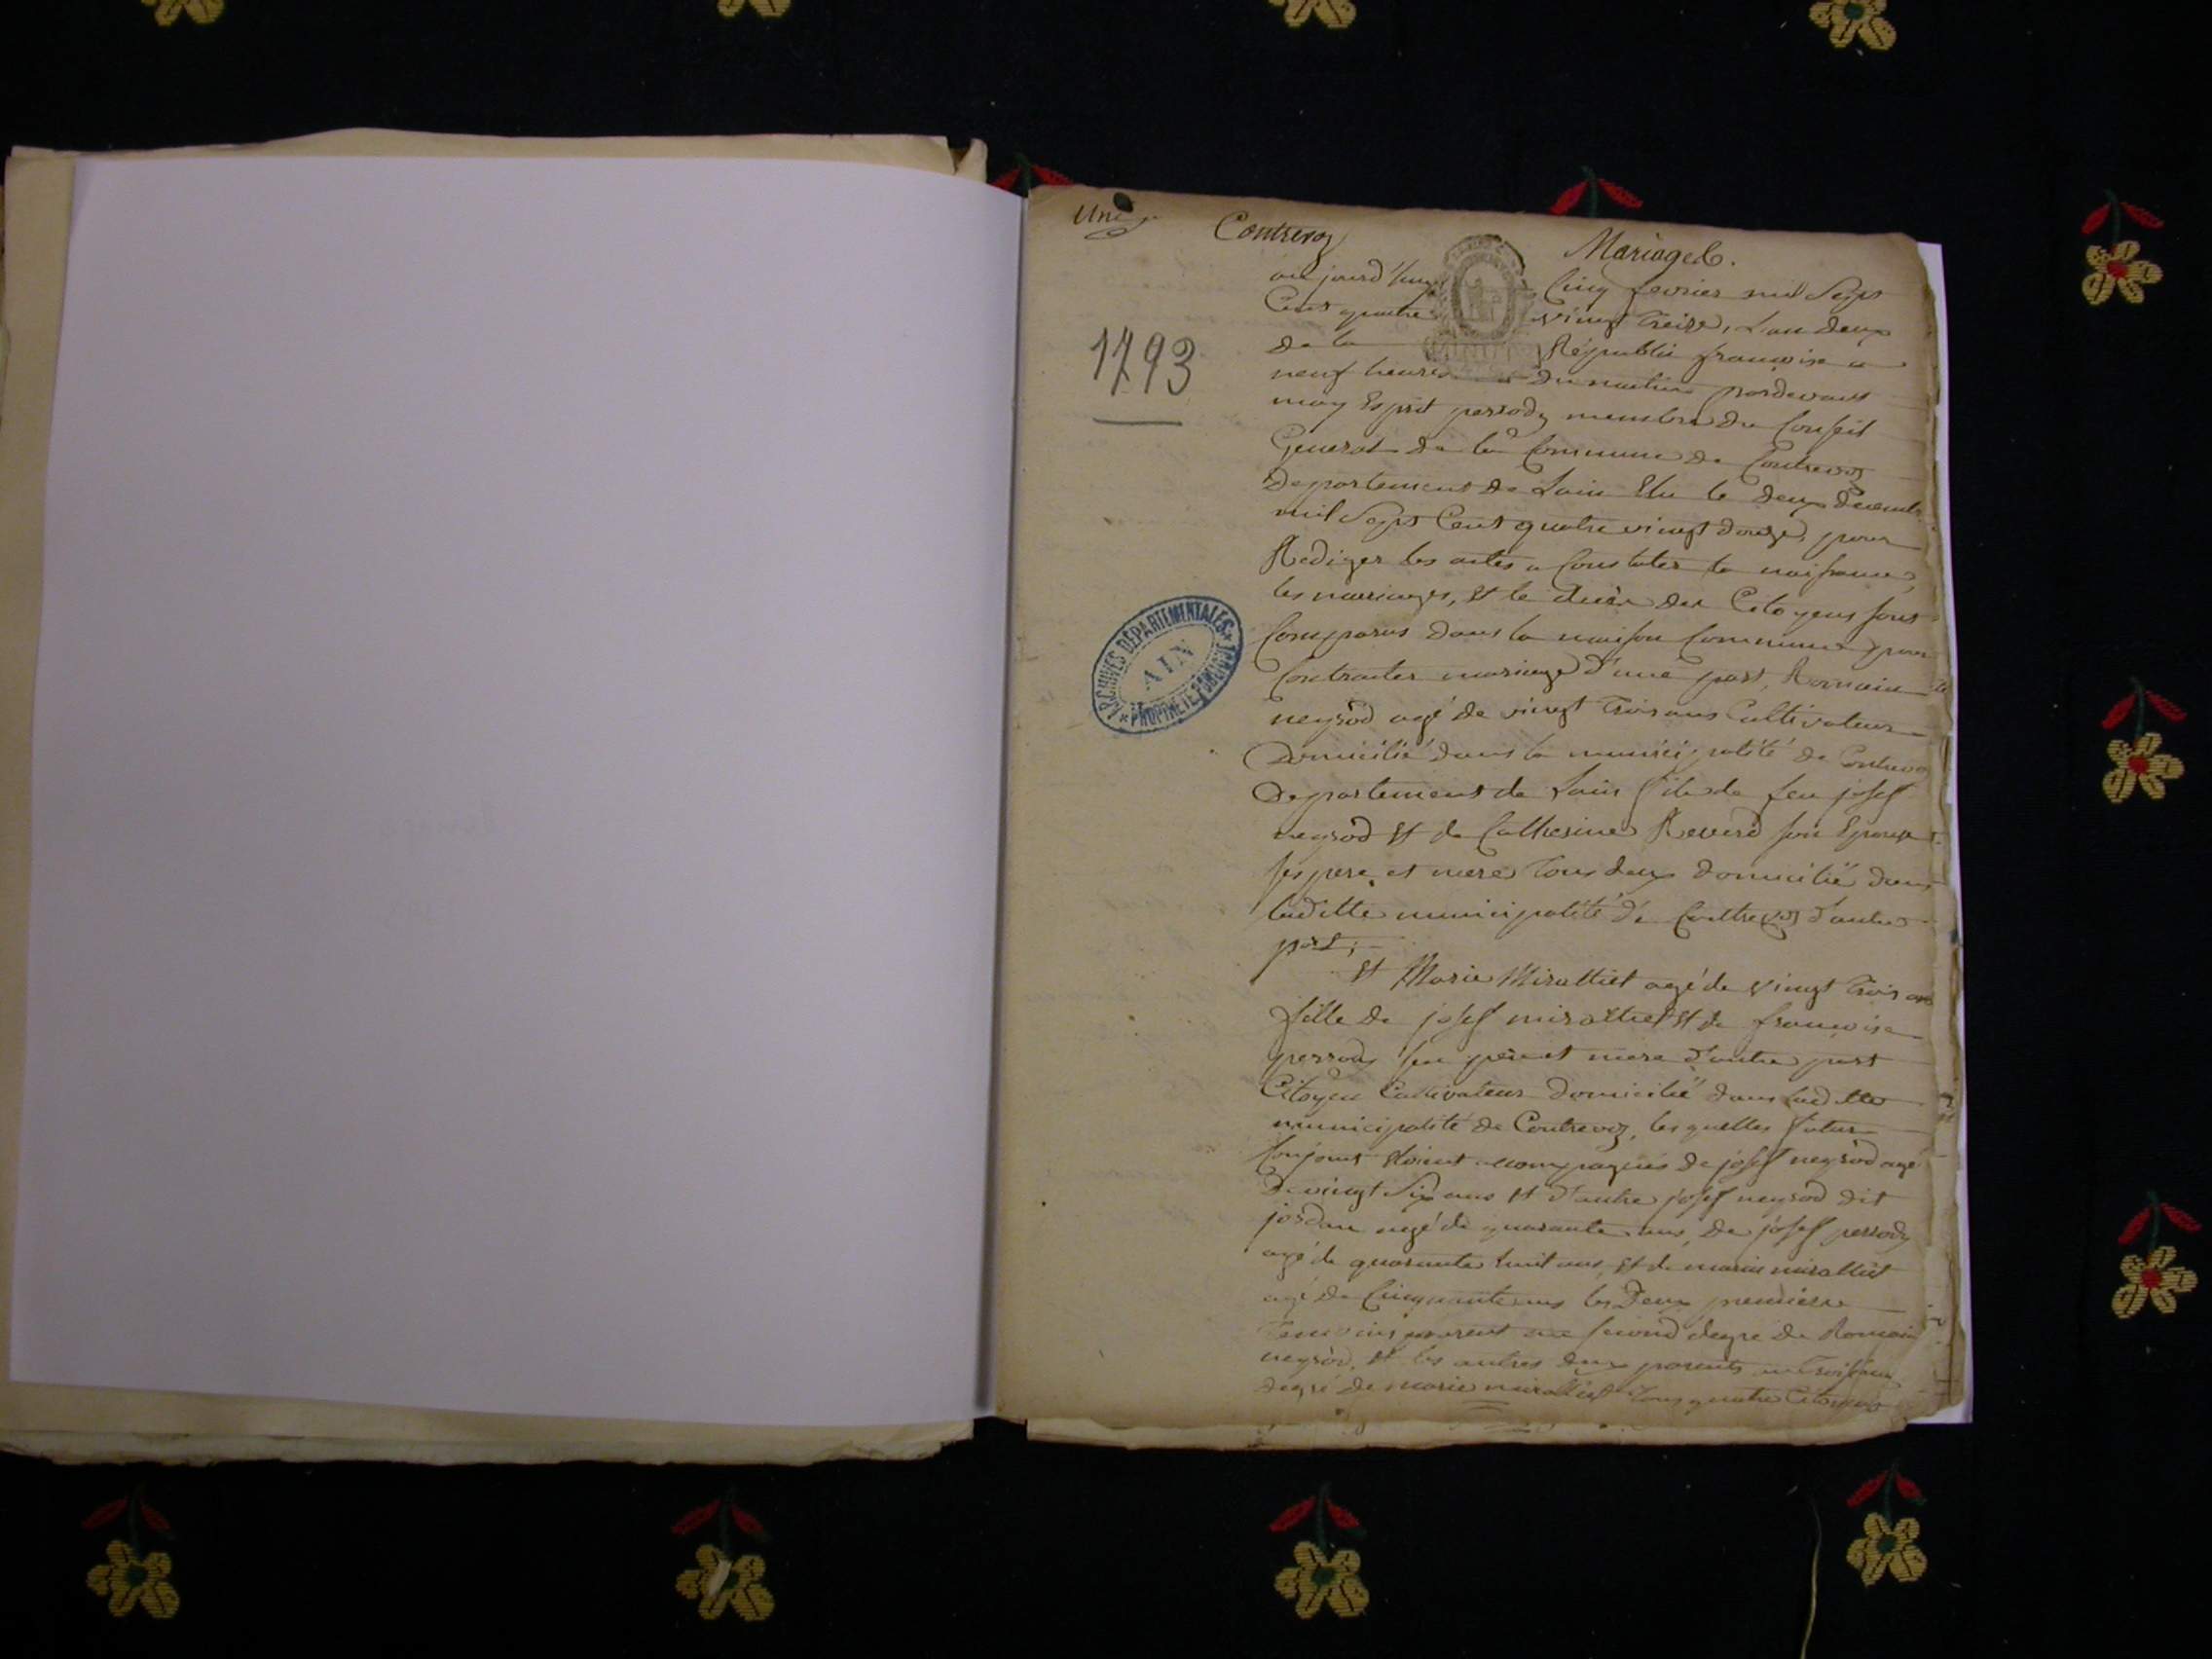 Une
Contrevoz
Mariages.
1793
au jourd'huy Cinq fevrier mil Sept
Cent quatre vingt treize, L'an deux
de la Républic françoise a
neuf heures du matin pardevant
moy Esprit perrody membre du Conseil
General de la Commune de Contrevoz
Departement de Lain Elu le deux Decemb
mil Sept Cent quatre vingt douze, pour
Rediger les actes a Constater la naissance,
les mariages, et le décès des Citoyens sont
Comparus dans la maison Commune pour
Contracter mariage d'une part, Romain
neyrod agé de vingt trois ans Cultivateur
Domicilié dans la municipalité de Contrevoz
Departement de Lain fils de feu josef
neyrod et de Catherine Reverd son Epouse
ses pere et mere tous deux domicilié dans
laditte municipalité de Contrevoz d'autre
part;
et Marie Miralliet agé de vingt trois ans
fille de josef miralliet et de françoise
perrody son pere et mere d'autre part
Citoyen Cultivateur domicilié dans laditte
municipalité de Contrevoz, les quelles futur
Conjoint étoient accompagnés de josef neyrod agé
de vingt Six ans et d'autre josef neyrod dit
jordan agé de quarante ans, de josef perrody
agé de quarante huit ans, et de marin miralliet
agé de Cinquante ans les Deux premiere
temoins parent au second degre de Romain
neyrod, et les autres deux parents au troisieme
degré de marie miralliet tous quatre Citoyens
ARCHIVES DÉPARTEMENTALES
AIN
PROPRIÉTÉ PUBLIQUE